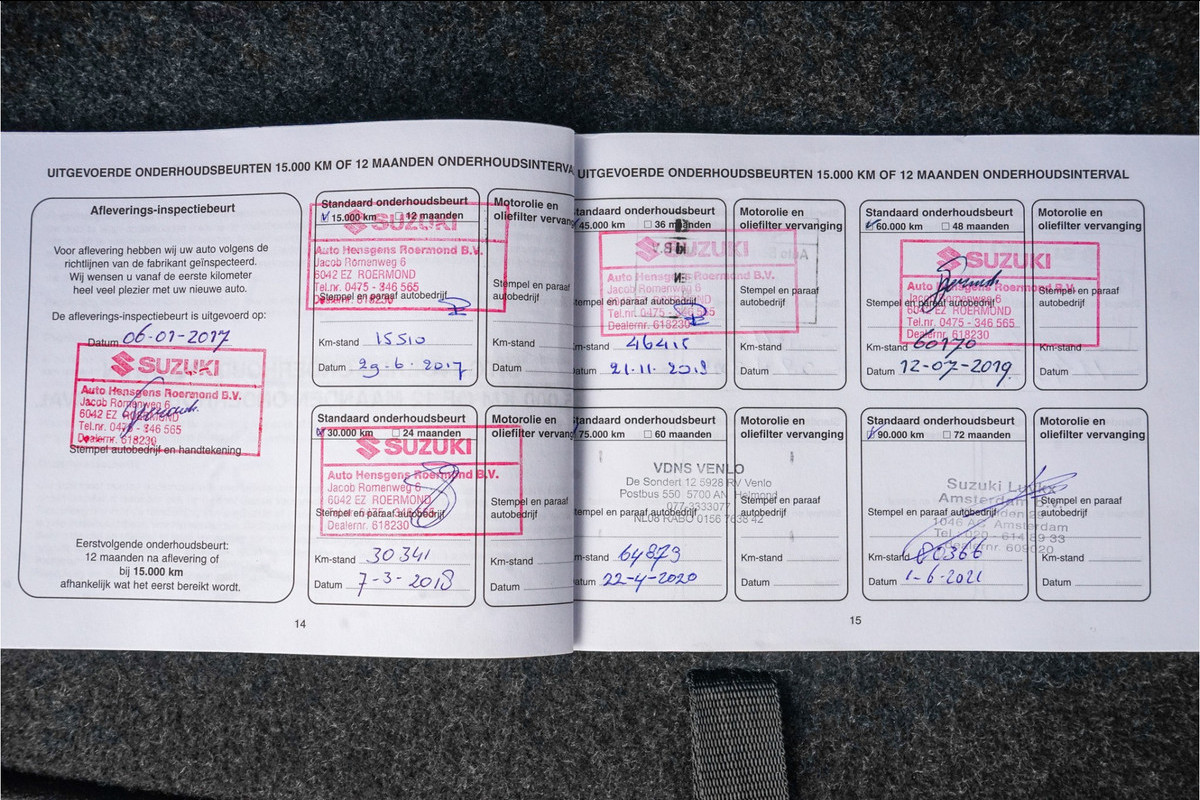 UITGEVOERDE ONDERHOUDSBEURTEN 15.000 KM OF 12 MAANDEN ONDERHOUDSINTERVA
Afleverings-inspectiebeurt
Voor aflevering hebben wij uw auto volgens de
richtlijnen van de fabrikant geïnspecteerd.
Wij wensen u vanaf de eerste kilometer
heel veel plezier met uw nieuwe auto.
De afleverings-inspectiebeurt is uitgevoerd op:
Datum 06-01-2017
SUZUKI
Auto Hensgens Roermond B.V.
Jacob Romenweg 6
6042 EZ ROERMOND
Tel.nr. 0475 - 346 565
Dealernr. 618230
Stempel autobedrijf en handtekening
Eerstvolgende onderhoudsbeurt:
12 maanden na aflevering of
bij 15.000 km
afhankelijk wat het eerst bereikt wordt.
Standaard onderhoudsbeurt
15.000 km 12 maanden
SUZUKI
Auto Hensgens Roermond B.V.
Jacob Romenweg 6
6042 EZ ROERMOND
Tel.nr. 0475 - 346 565
Dealernr. 618230
Stempel en paraaf autobedrijf
Km-stand 15510
Datum 29-6-2017
Motorolie en
oliefilter vervang
Stempel en paraaf
autobedrijf
Km-stand
Datum
Standaard onderhoudsbeurt
30.000 km 24 maanden
SUZUKI
Auto Hensgens Roermond B.V.
Jacob Romenweg 6
6042 EZ ROERMOND
Stempel en paraaf autobedrijf
Dealernr. 618230
Km-stand 30341
Datum 7-3-2018
Motorolie en
oliefilter vervang
Stempel en paraaf
autobedrijf
Km-stand
Datum
14
UITGEVOERDE ONDERHOUDSBEURTEN 15.000 KM OF 12 MAANDEN ONDERHOUDSINTERVAL
tandaard onderhoudsbeurt
45.000 km 36 maanden
SUZUKI
Auto Hensgens Roermond B.V.
Jacob Romenweg 6
6042 EZ ROERMOND
tempel en paraaf autobedrijf
Tel.nr. 0475 - 346 565
Dealernr. 618230
m-stand 46415
atum 21-11-2018
Motorolie en
oliefilter vervanging
Stempel en paraaf
autobedrijf
Km-stand
Datum
Standaard onderhoudsbeurt
60.000 km 48 maanden
SUZUKI
Auto Hensgens Roermond B.V.
Jacob Romenweg 6
Stempel en paraaf autobedrijf
6042 EZ ROERMOND
Tel.nr. 0475 - 346 565
Dealernr. 618230
Km-stand 60170
Datum 12-07-2019
Motorolie en
oliefilter vervanging
Stempel en paraaf
autobedrijf
Km-stand
Datum
tandaard onderhoudsbeurt
75.000 km 60 maanden
VDNS VENLO
De Sondert 12 5928 RV Venlo
Postbus 550 5700 AN Helmond
077-3333077
tempel en paraaf autobedrijf
NL08 RABO 0156 7638 42
m-stand 64873
atum 22-4-2020
Motorolie en
oliefilter vervanging
Stempel en paraaf
autobedrijf
Km-stand
Datum
Standaard onderhoudsbeurt
90.000 km 72 maanden
Suzuki
Amsterdam B.V.
Stempel en paraaf autobedrijf
Amsterdam
Tel. 020 - 614 89 33
Dealernr. 609020
Km-stand 80366
Datum 1-6-2021
Motorolie en
oliefilter vervanging
Stempel en paraaf
autobedrijf
Km-stand
Datum
15